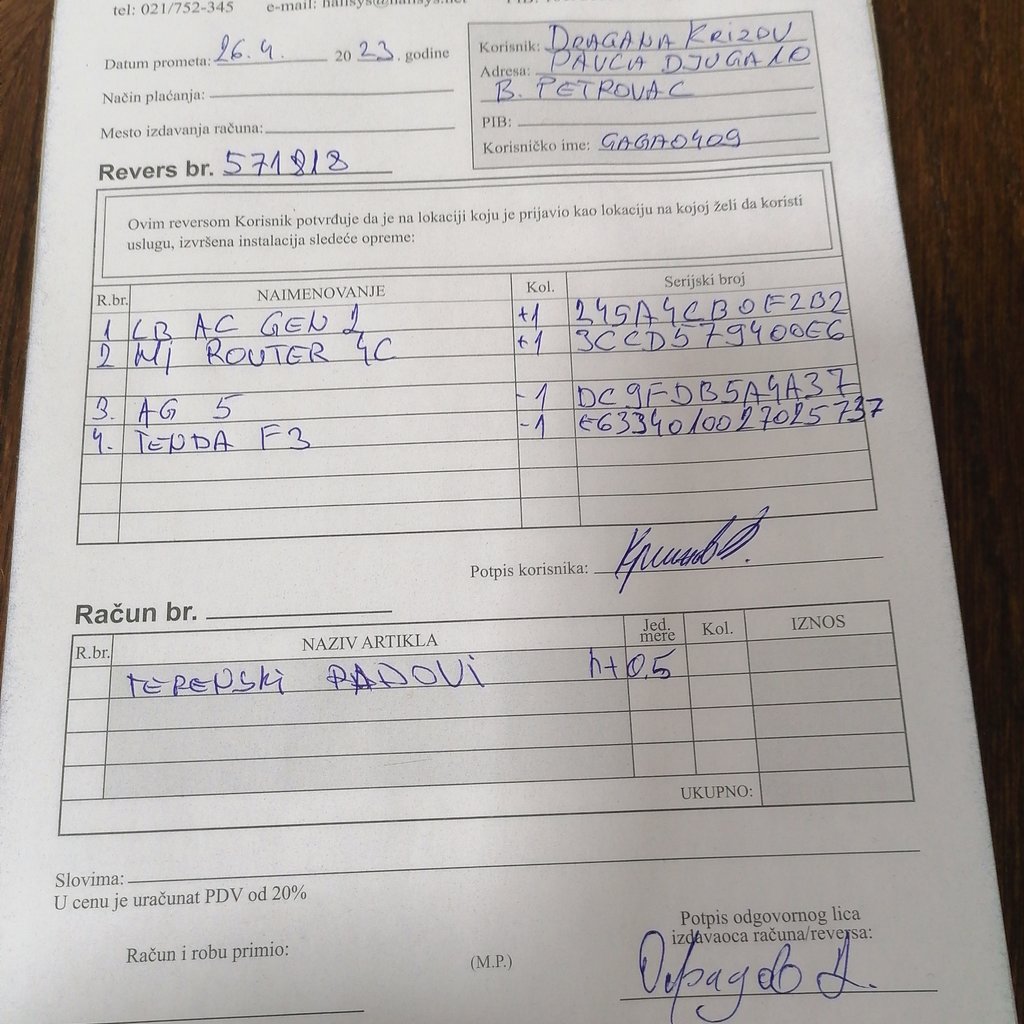 tel: 021/752-345 e-mail:
Datum prometa: 26.4. 2023. godine
Način plaćanja:
Mesto izdavanja računa:
Revers br. 571818
Korisnik: DRAGANA KRIZOV
Adresa: PAVLA DJUGA 10
B. PETROVAC
PIB:
Korisničko ime: GAGA0409
Ovim reversom Korisnik potvrđuje da je na lokaciji koju je prijavio kao lokaciju na kojoj želi da koristi
uslugu, izvršena instalacija sledeće opreme:
R.br. NAIMENOVANJE Kol. Serijski broj
1 LB AC GEN 2 +1 245A4CB0E2B2
2 MI ROUTER 4C +1 3CCD579400E6
3. AG 5 -1 DC9FDB5A4A37
4. TENDA F3 -1 E6334010027025737
Potpis korisnika:
Račun br.
R.br. NAZIV ARTIKLA Jed. mere Kol. IZNOS
TERENSKI RADOVI h+0,5
UKUPNO:
Slovima:
U cenu je uračunat PDV od 20%
Račun i robu primio:
(M.P.)
Potpis odgovornog lica
izdavaoca računa/reversa: